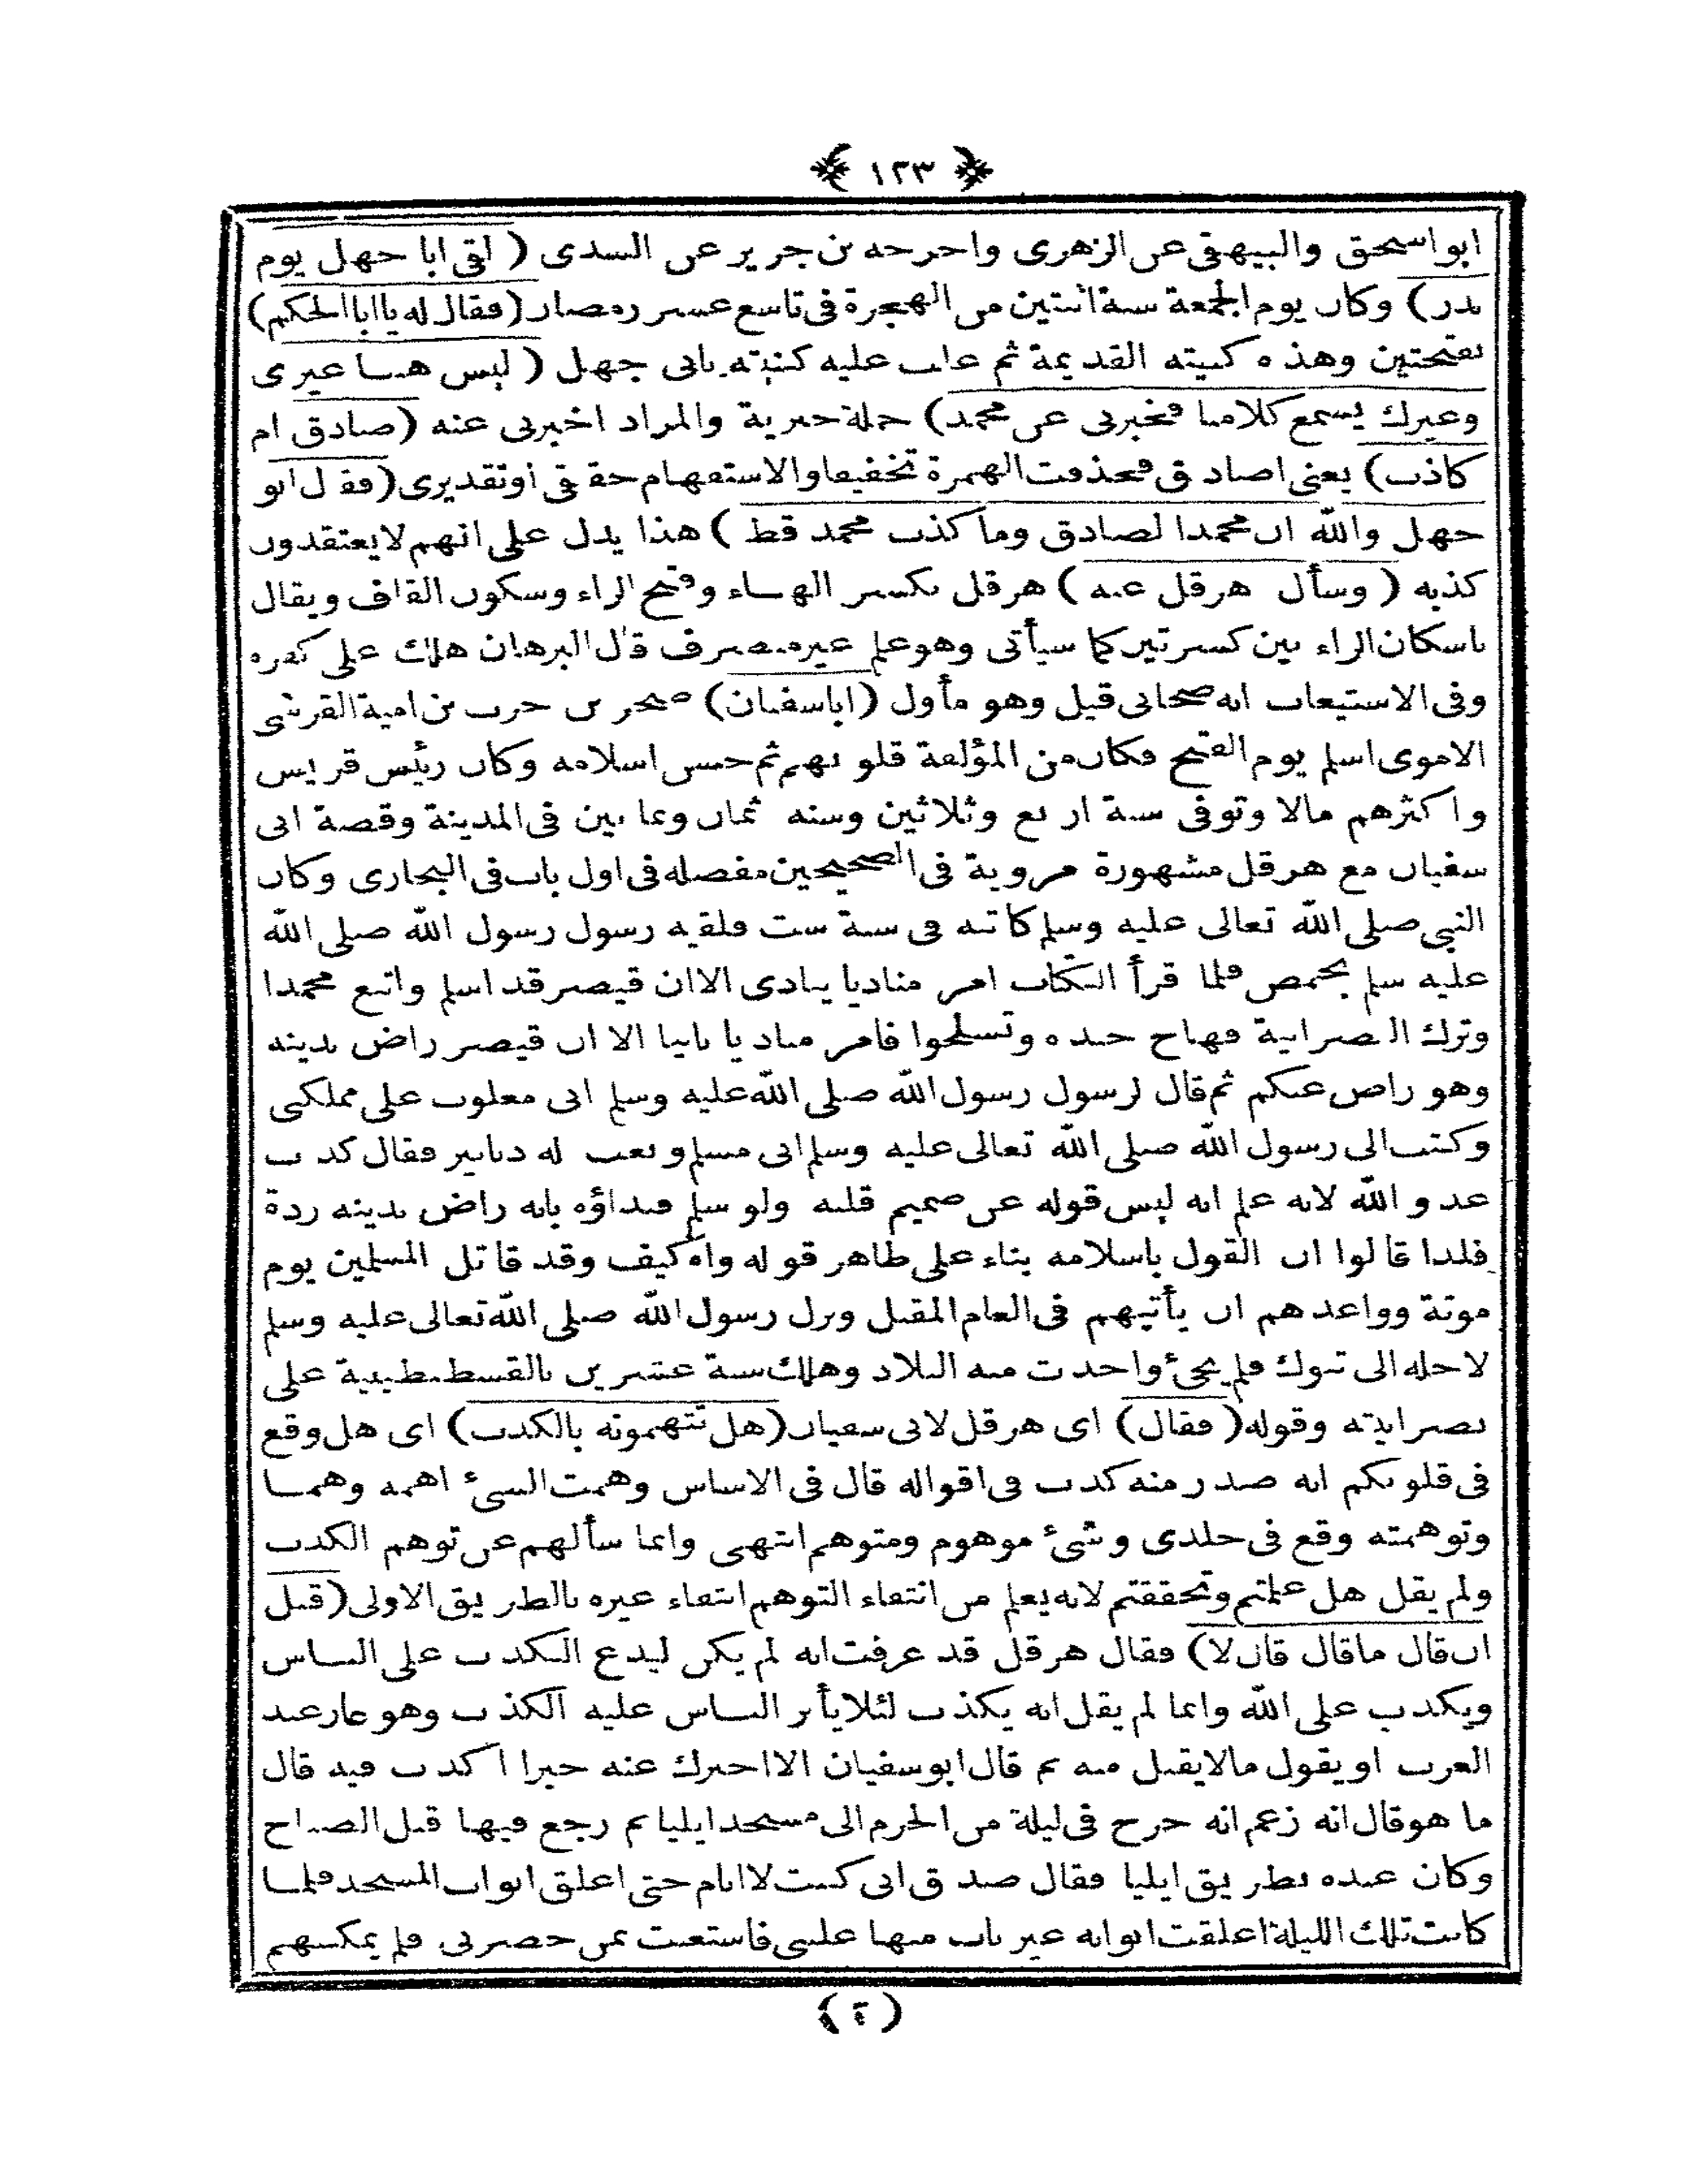 ﴿ ١٢٣ ﴾
ابو اسحق والبيهقى عن الزهرى واخرجه بن جرير عن السدى ( لقى ابا جهل يوم
بدر ) وكان يوم الجمعة سنة اثنتين من الهجرة فى تاسع عشر رمضان ( فقال له يا ابا الحكم )
بفتحتين وهذه كنيته القديمة ثم غلب عليه كنيته بابى جهل ( ليس هنا غيرى
وغيرك يسمع كلامنا فخبرنى عن محمد ) جملة خبرية والمراد اخبرنى عنه ( صادق ام
كاذب ) يعنى اصادق فحذفت الهمزة تخفيفا والاستفهام حقيقى اوتقديرى ( فقال ابو
جهل والله ان محمدا لصادق وما كذب محمد قط ) هذا يدل على انهم لايعتقدون
كذبه ( وسأل هرقل عنه ) هرقل بكسر الهاء وفتح الراء وسكون القاف ويقال
باسكان الراء بين كسرتين كما سيأتى وهو علم غير منصرف قال البرهان هلك على كفره
وفى الاستيعاب انه صحابى قيل وهو مأول ( اباسفيان ) صخر بن حرب بن امية القرشى
الاموى اسلم يوم الفتح فكان من المؤلفة قلوبهم ثم حسن اسلامه وكان رئيس قريش
واكثرهم مالا وتوفى سنة اربع وثلاثين وسنه ثمان وثمانين فى المدينة وقصة ابى
سفيان مع هرقل مشهورة مروية فى الصحيحين مفصلة فى اول باب فى البخارى وكان
النبى صلى الله تعالى عليه وسلم كاتبه فى سنة ست فلقيه رسول رسول الله صلى الله
عليه سلم بحمص فلما قرأ الكتاب امر مناديا ينادى الا ان قيصر قد اسلم واتبع محمدا
وترك النصرانية فهاج جنده وتسلحوا فامر مناديا ثانيا الا ان قيصر راض بدينه
وهو راض عنكم ثم قال لرسول رسول الله صلى الله عليه وسلم انى مغلوب على مملكتى
وكتب الى رسول الله صلى الله تعالى عليه وسلم انى مسلم وبعث له دنانير فقال كذب
عدو الله لانه علم انه ليس قوله عن صميم قلبه ولو سلم فنداؤه بانه راض بدينه ردة
فلذا قالوا ان القول باسلامه بناء على ظاهر قوله واه كيف وقد قاتل المسلمين يوم
موتة وواعدهم ان يأتيهم فى العام المقبل ونزل رسول الله صلى الله تعالى عليه وسلم
لاجله الى تبوك فلم يجئ واخذت منه البلاد وهلك سنة عشرين بالقسطنطينية على
نصرانيته وقوله ( فقال ) اى هرقل لابى سفيان ( هل تتهمونه بالكذب ) اى هل وقع
فى قلوبكم انه صدر منه كذب فى اقواله قال فى الاساس وهمت الشئ اهمه وهما
وتوهمته وقع فى خلدى وشئ موهوم ومتوهم انتهى وانما سألهم عن توهم الكذب
ولم يقل هل علمتم وتحققتم لانه يعلم من انتفاء التوهم انتفاء غيره بالطريق الاولى ( قبل
ان قال ماقال قال لا ) فقال هرقل قد عرفت انه لم يكن ليدع الكذب على الناس
ويكذب على الله وانما لم يقل انه يكذب لئلا يأثر الناس عليه الكذب وهو عار عند
العرب او يقول مالايقبل منه ثم قال ابوسفيان الا اخبرك عنه خبرا اكذب فيه قال
ما هو قال انه زعم انه خرج فى ليلة من الحرم الى مسجد ايليا ثم رجع فيها قبل الصباح
وكان عنده بطريق ايليا فقال صدق انى كنت لا انام حتى اغلق ابواب المسجد فلما
كانت تلك الليلة اغلقت ابوابه غير باب منها غلبنى فاستعنت بمن حضرنى فلم يمكنهم
( ٤ )